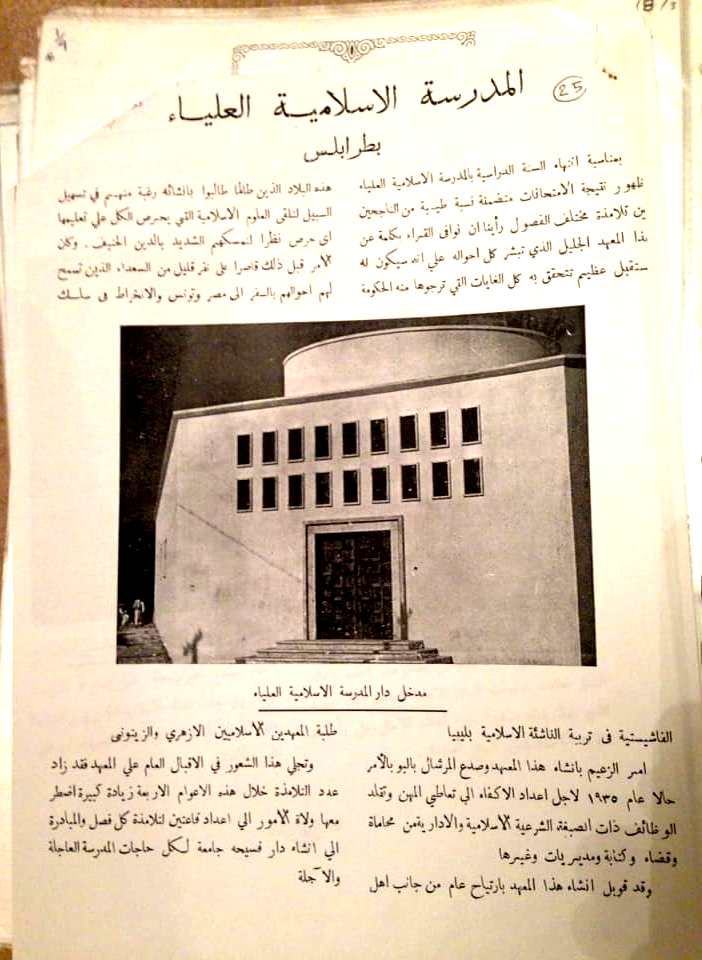 25
المدرسة الاسلامية العلياء
بطرابلس
بمناسبة انتهاء السنة الدراسية بالمدرسة الاسلامية العلياء
ظهور نتيجة الامتحانات متضمنة نسبة طيبة من الناجحين
ين تلامذة مختلف الفصول رأينا ان نوافى القراء بكلمة عن
ذا المعهد الجليل الذي تبشر كل احواله علي انه سيكون له
ستقبل عظيم تتحقق به كل الغايات التي ترجوها منه الحكومة
الفاشيستية فى تربية الناشئة الاسلامية بليبيا
امر الزعيم بانشاء هذا المعهد وصدع المرشال بالبو بالأمر
حالا عام ١٩٣٥ لاجل اعداد الاكفاء الي تعاطي المهن وتقلد
الوظائف ذات الصبغة الشرعية الاسلامية والادارية من محاماة
وقضاء وكتابة ومديريات وغيرها
وقد قوبل انشاء هذا المعهد بارتياح عام من جانب اهل
هذه البلاد الذين طالما طالبوا بانشائه رغبة منهم في تسهيل
السبيل لتلقى العلوم الاسلامية التي يحرص الكل علي تعليمها
اى حرص نظرا لتمسكهم الشديد بالدين الحنيف. وكان
الامر قبل ذلك قاصرا على نفر قليل من السعداء الذين تسمح
لهم احوالهم بالسفر الى مصر وتونس والانخراط فى سلك
طلبة المعهدين الاسلاميين الازهري والزيتونى
وتجلي هذا الشعور في الاقبال العام علي المعهد فقد زاد
عدد التلامذة خلال هذه الاعوام الاربعة زيادة كبيرة اضطر
معها ولاة الامور الي اعداد قاعتين لتلامذة كل فصل والمبادرة
الي انشاء دار فسيحه جامعة لكل حاجات المدرسة العاجلة
والآجلة
مدخل دار المدرسة الاسلامية العلياء